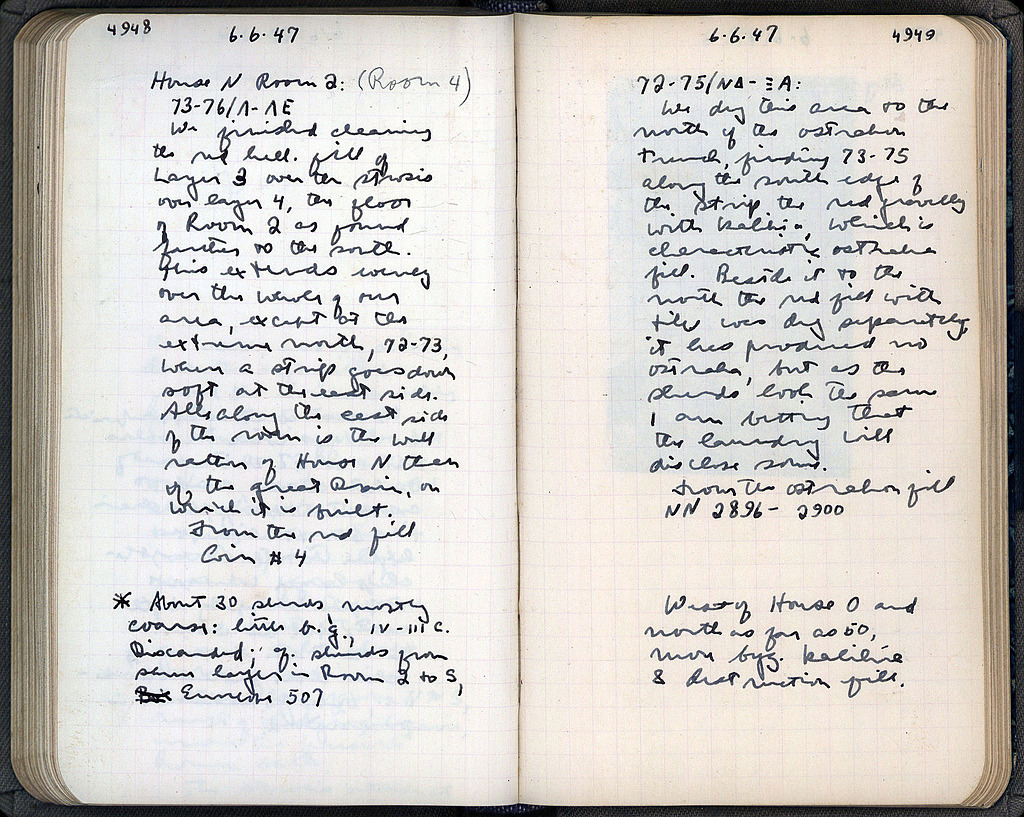 4948
6.6.47
House N Room 2: (Room 4)
73-76/Λ-ΛΕ
We finished cleaning
the red hell. fill of
Layer 3 over the strosis
over layer 4, the floor
of Room 2 as found
further to the south.
This extends evenly
over the whole of our
area, except at the
extreme north, 72-73,
where a strip goes down
soft at the east side.
All along the east side
of the room is the wall
rather of House N than
of the great Drain, on
which it is built.
From the red fill
Coin #4
* About 30 sherds, mostly
coarse: little b.g., IV-III c.
Discarded; cf. sherds from
same layer in Room 2 to S,
Envelope 507
6.6.47
4949
72-75/ΝΔ-ΞΑ:
We dig this area to the
north of the ostrakon
trench, finding 73-75
along the south edge of
the strip the red gravelly
with kalihia, which is
characteristic ostraka
fill. Beside it to the
north the red fill with
tile was dug separately,
it has produced no
ostraka, but as the
sherds look the same
I am betting that
the laundry will
disclose some.
From the ostrakon fill
NN 2896-2900
West of House O and
north as far as 50,
more byz. kalihia
& destruction fill.